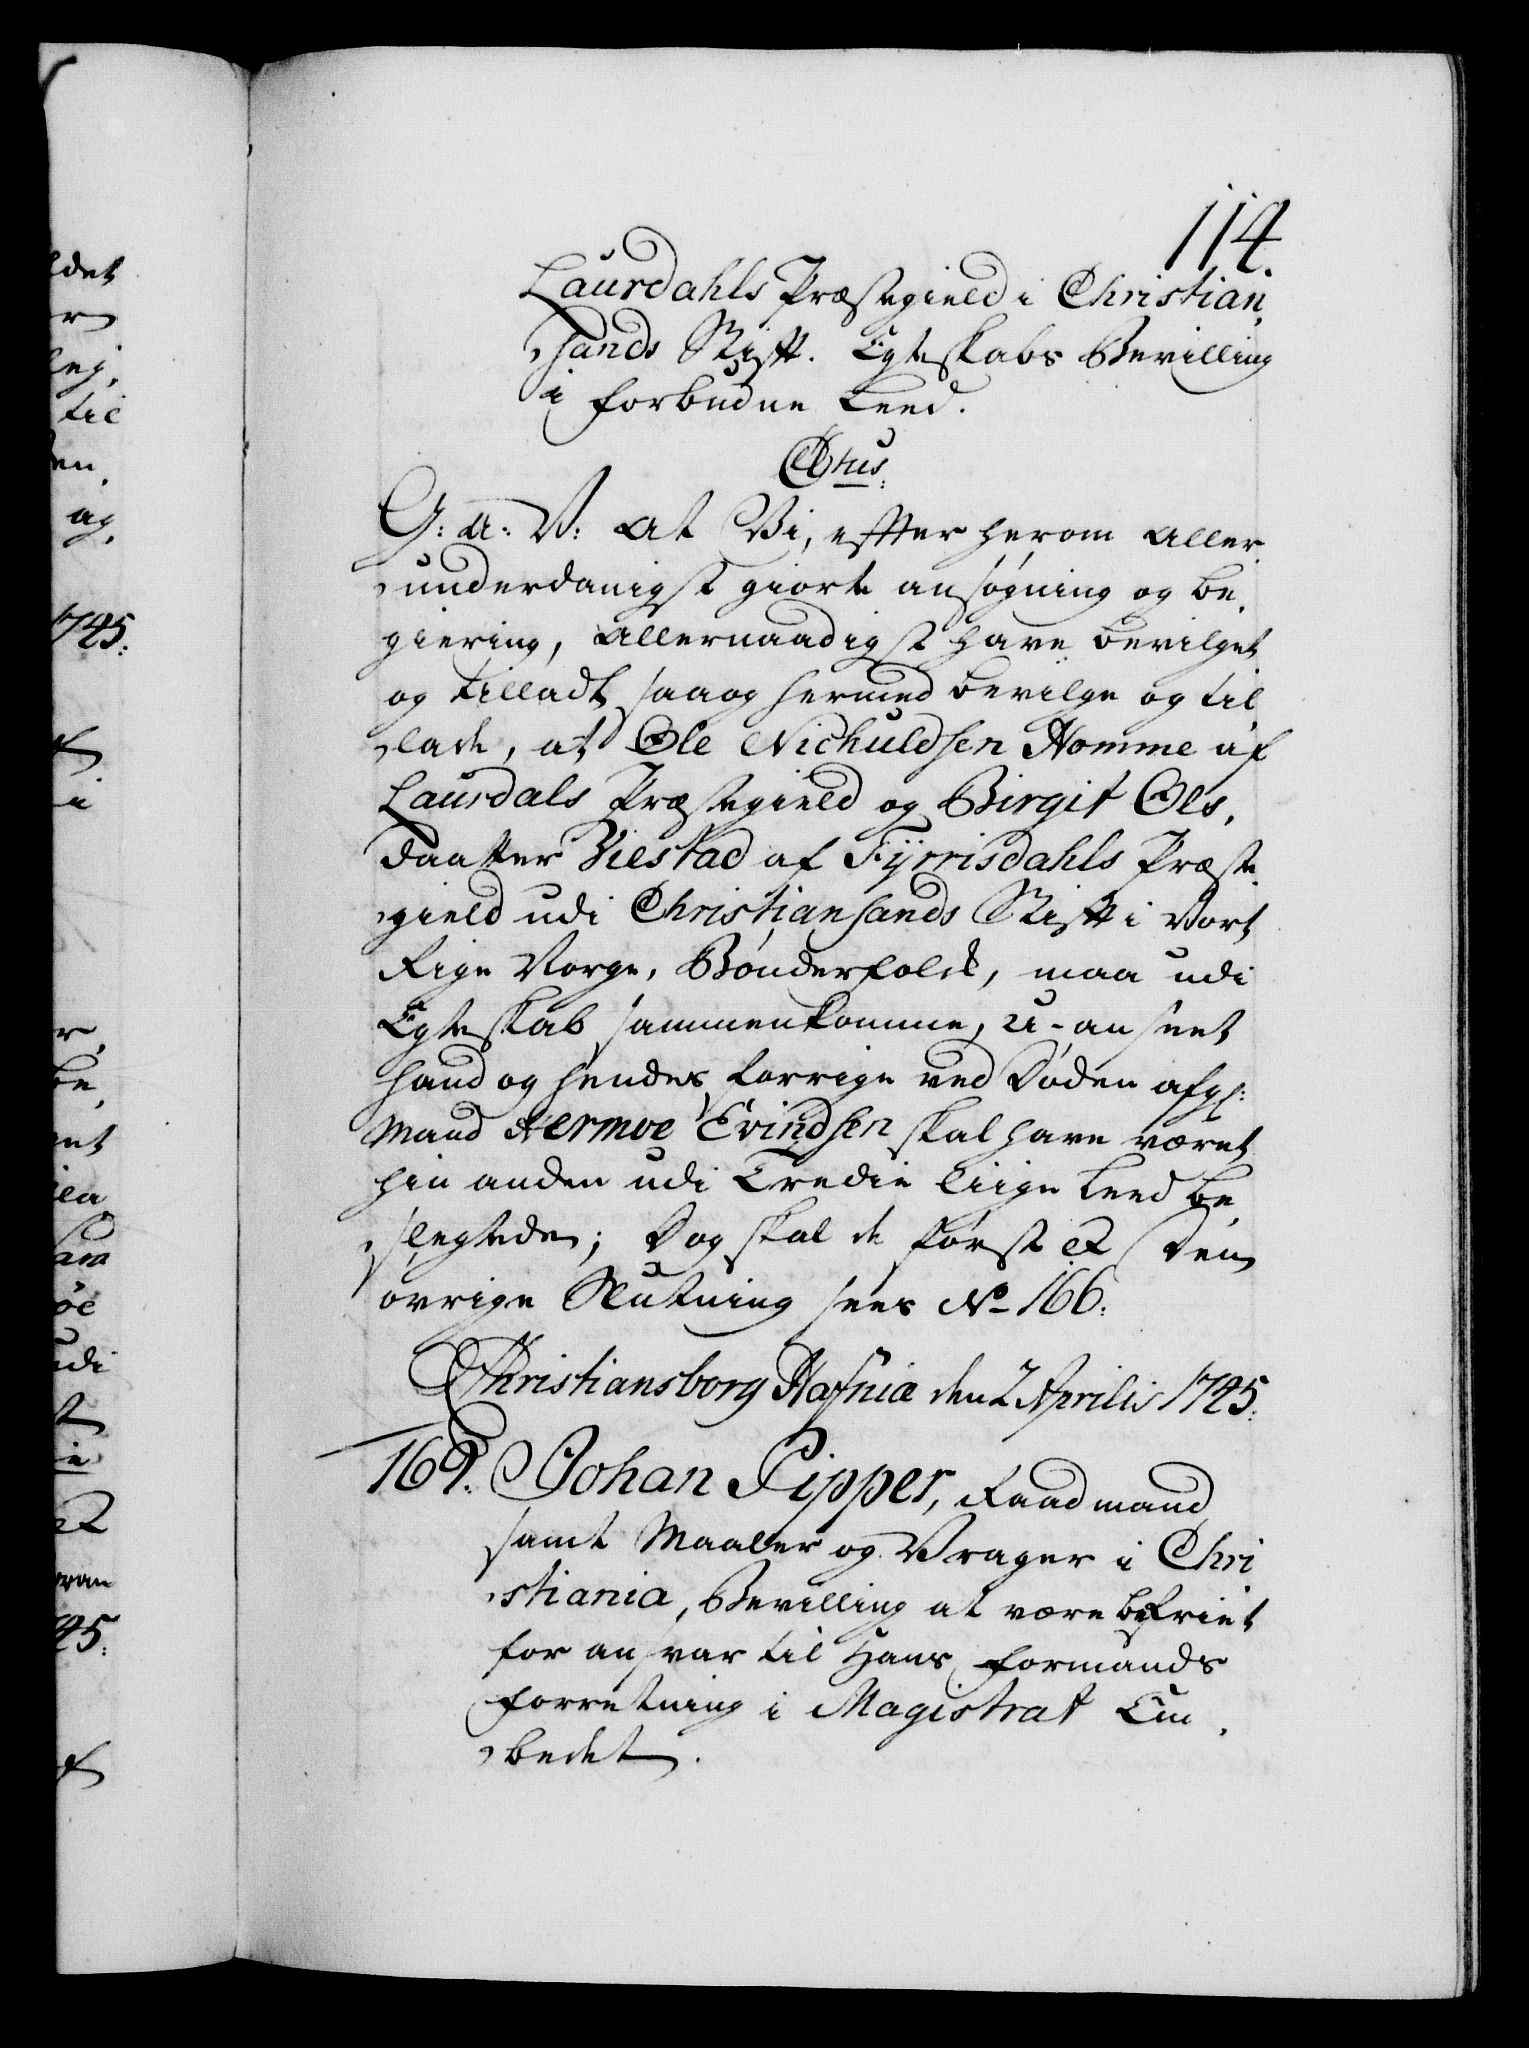 114.
Laurdahls Præstegield i Christian,
sands Stift. Egteskabs Bevilling
i forbudne Leed.
C6tus.
G: A: V: At Vi, effter herom aller
underdanigst giorte ansøgning og be,
giering, allernaadigst have bevilget
og tilladt, saa og hermed bevilge og til
lade, at Ole Nichuldsen Homme af
Laurdals Præstegield og Birgit Ols,
daatter Viestad af Fÿrrisdahls Præste
gield udi Christiansands Stift i Vort
Rige Norge, Bønderfolck, maa udi
Egteskab sammenkomme, u-anseet
hand og hendes forrige ved Døden afg:
Mand Hermoe Evindsen skal have været
hin anden udi Tredie Liige Leed be
slegtede; Dog skal de først &c. Den
øvrige Slutning sees No 166.
Christiansborg Hafniæ den 2 Aprilis 1745.
169. Johan Pipper, Raadmand
samt Maaler og Vrager i Chri
stiania, Bevilling at være befriet
for ansvar til Hans Formands
forretning i Magistrat Em,
bedet.
det
r
ej,
til
en,
og,
1745.
i
r,
be,
et
øe
udi
i
&c
45.